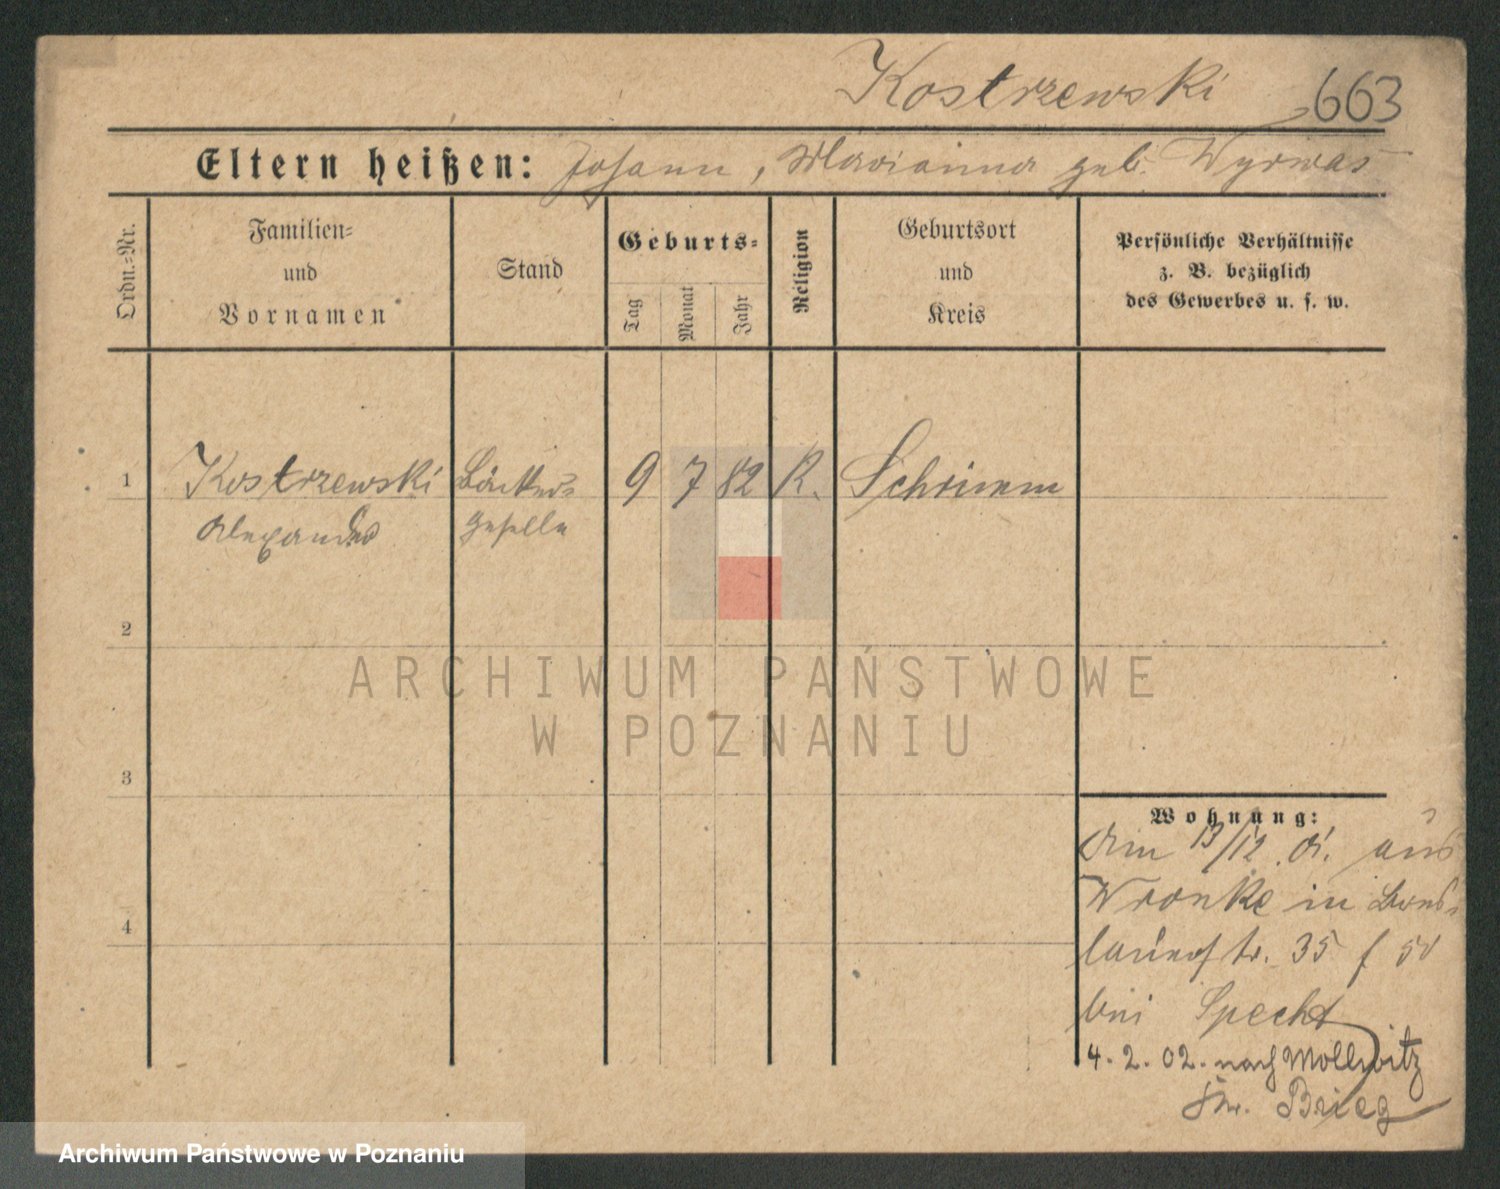 Kostrzewski 663
Eltern heißen: Johann, Marianna geb. Wyrwas
Ordn.-Nr.
Familien-
und
Vornamen
Stand
Geburts-
Tag
Monat
Jahr
Religion
Geburtsort
und
Kreis
Persönliche Verhältnisse
z. B. bezüglich
des Gewerbes u. s. w.
1 Kostrzewski Bäcker- 9 7 82 K. Schrimm
Alexander geselle
2
3
4
Wohnung:
Am 13/12. 01. aus
Wronke in Bres-
lauerstr. 35 f 50
bei Specht
4. 2. 02. nach Mollwitz
Kr. Brieg
ARCHIWUM PAŃSTWOWE
W POZNANIU
Archiwum Państwowe w Poznaniu